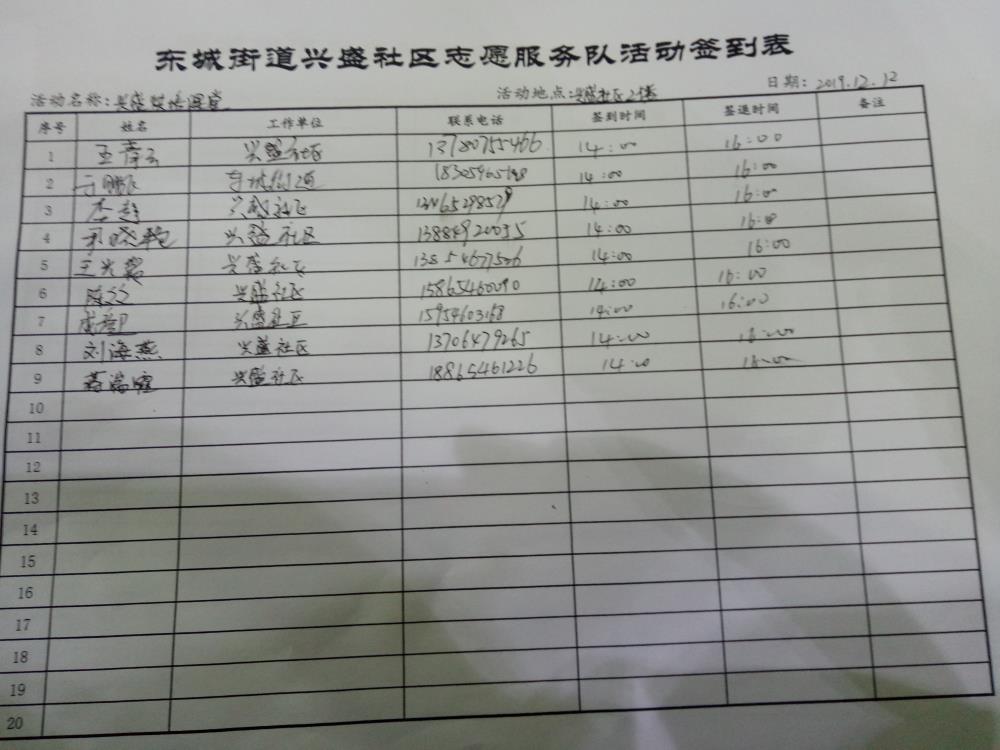 东城街道兴盛社区志愿服务队活动签到表
活动名称：兴盛 活动地点：兴盛社区2楼 日期：2019.12.12
序号 姓名 工作单位 联系电话 签到时间 签退时间 备注
1 兴盛社区 13780755466 14:00 16:00
2 14:00 16:00
3 李超 兴盛社区 14:00 16:00
4 兴盛社区 13884920035 14:00 16:00
5 兴盛社区 13854677526 14:00 16:00
6 兴盛社区 15865460090 14:00 16:00
7 兴盛社区 15954603168 14:00 16:00
8 刘海燕 兴盛社区 13706479265 14:00 16:00
9 兴盛社区 18865461226 14:00 16:00
10
11
12
13
14
15
16
17
18
19
20